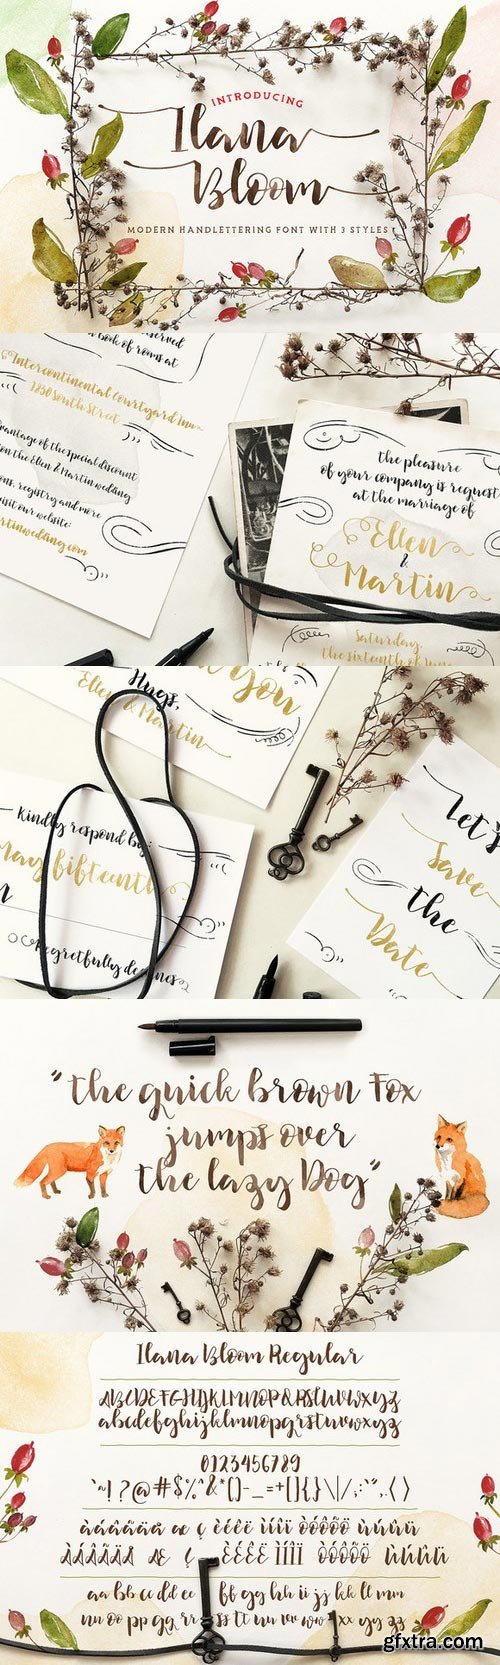 INTRODUCING
Ilana
Bloom
MODERN HANDLETTERING FONT WITH 3 STYLES
book of rooms at
Intercontinental Courtyard Inn
1280 South Street
advantage of the special discount
on the Ellen & Martin wedding
registry and more
visit our website:
the pleasure
of your company is request
at the marriage of
Ellen
&
Martin
Saturday,
the sixteenth of June
You
Hugs,
Ellen & Martin
Kindly respond by:
May fifteenth
Regretfully declines
Let's
Save
the
Date
"the quick brown Fox
jumps over
the lazy Dog"
Ilana Bloom Regular
ABCDEFGHIJKLMNOPQRSTUVWXYZ
abcdefghijklmnopqrstuvwxyz
0123456789
`~!?@#$%^&*()-_=+[]{}\|/,:`",.<>
àáâãäå æ ç èéêë ìíîï òóôõö ùúûü
ÀÁÂÃÄÅ Æ Ç ÈÉÊË ÌÍÎÏ ÒÓÔÕÖ ÙÚÛÜ
aa bb cc dd ee ff gg hh ii jj kk ll mm
nn oo pp qq rr ss tt uu vv ww xx yy zz
gfxtra.com